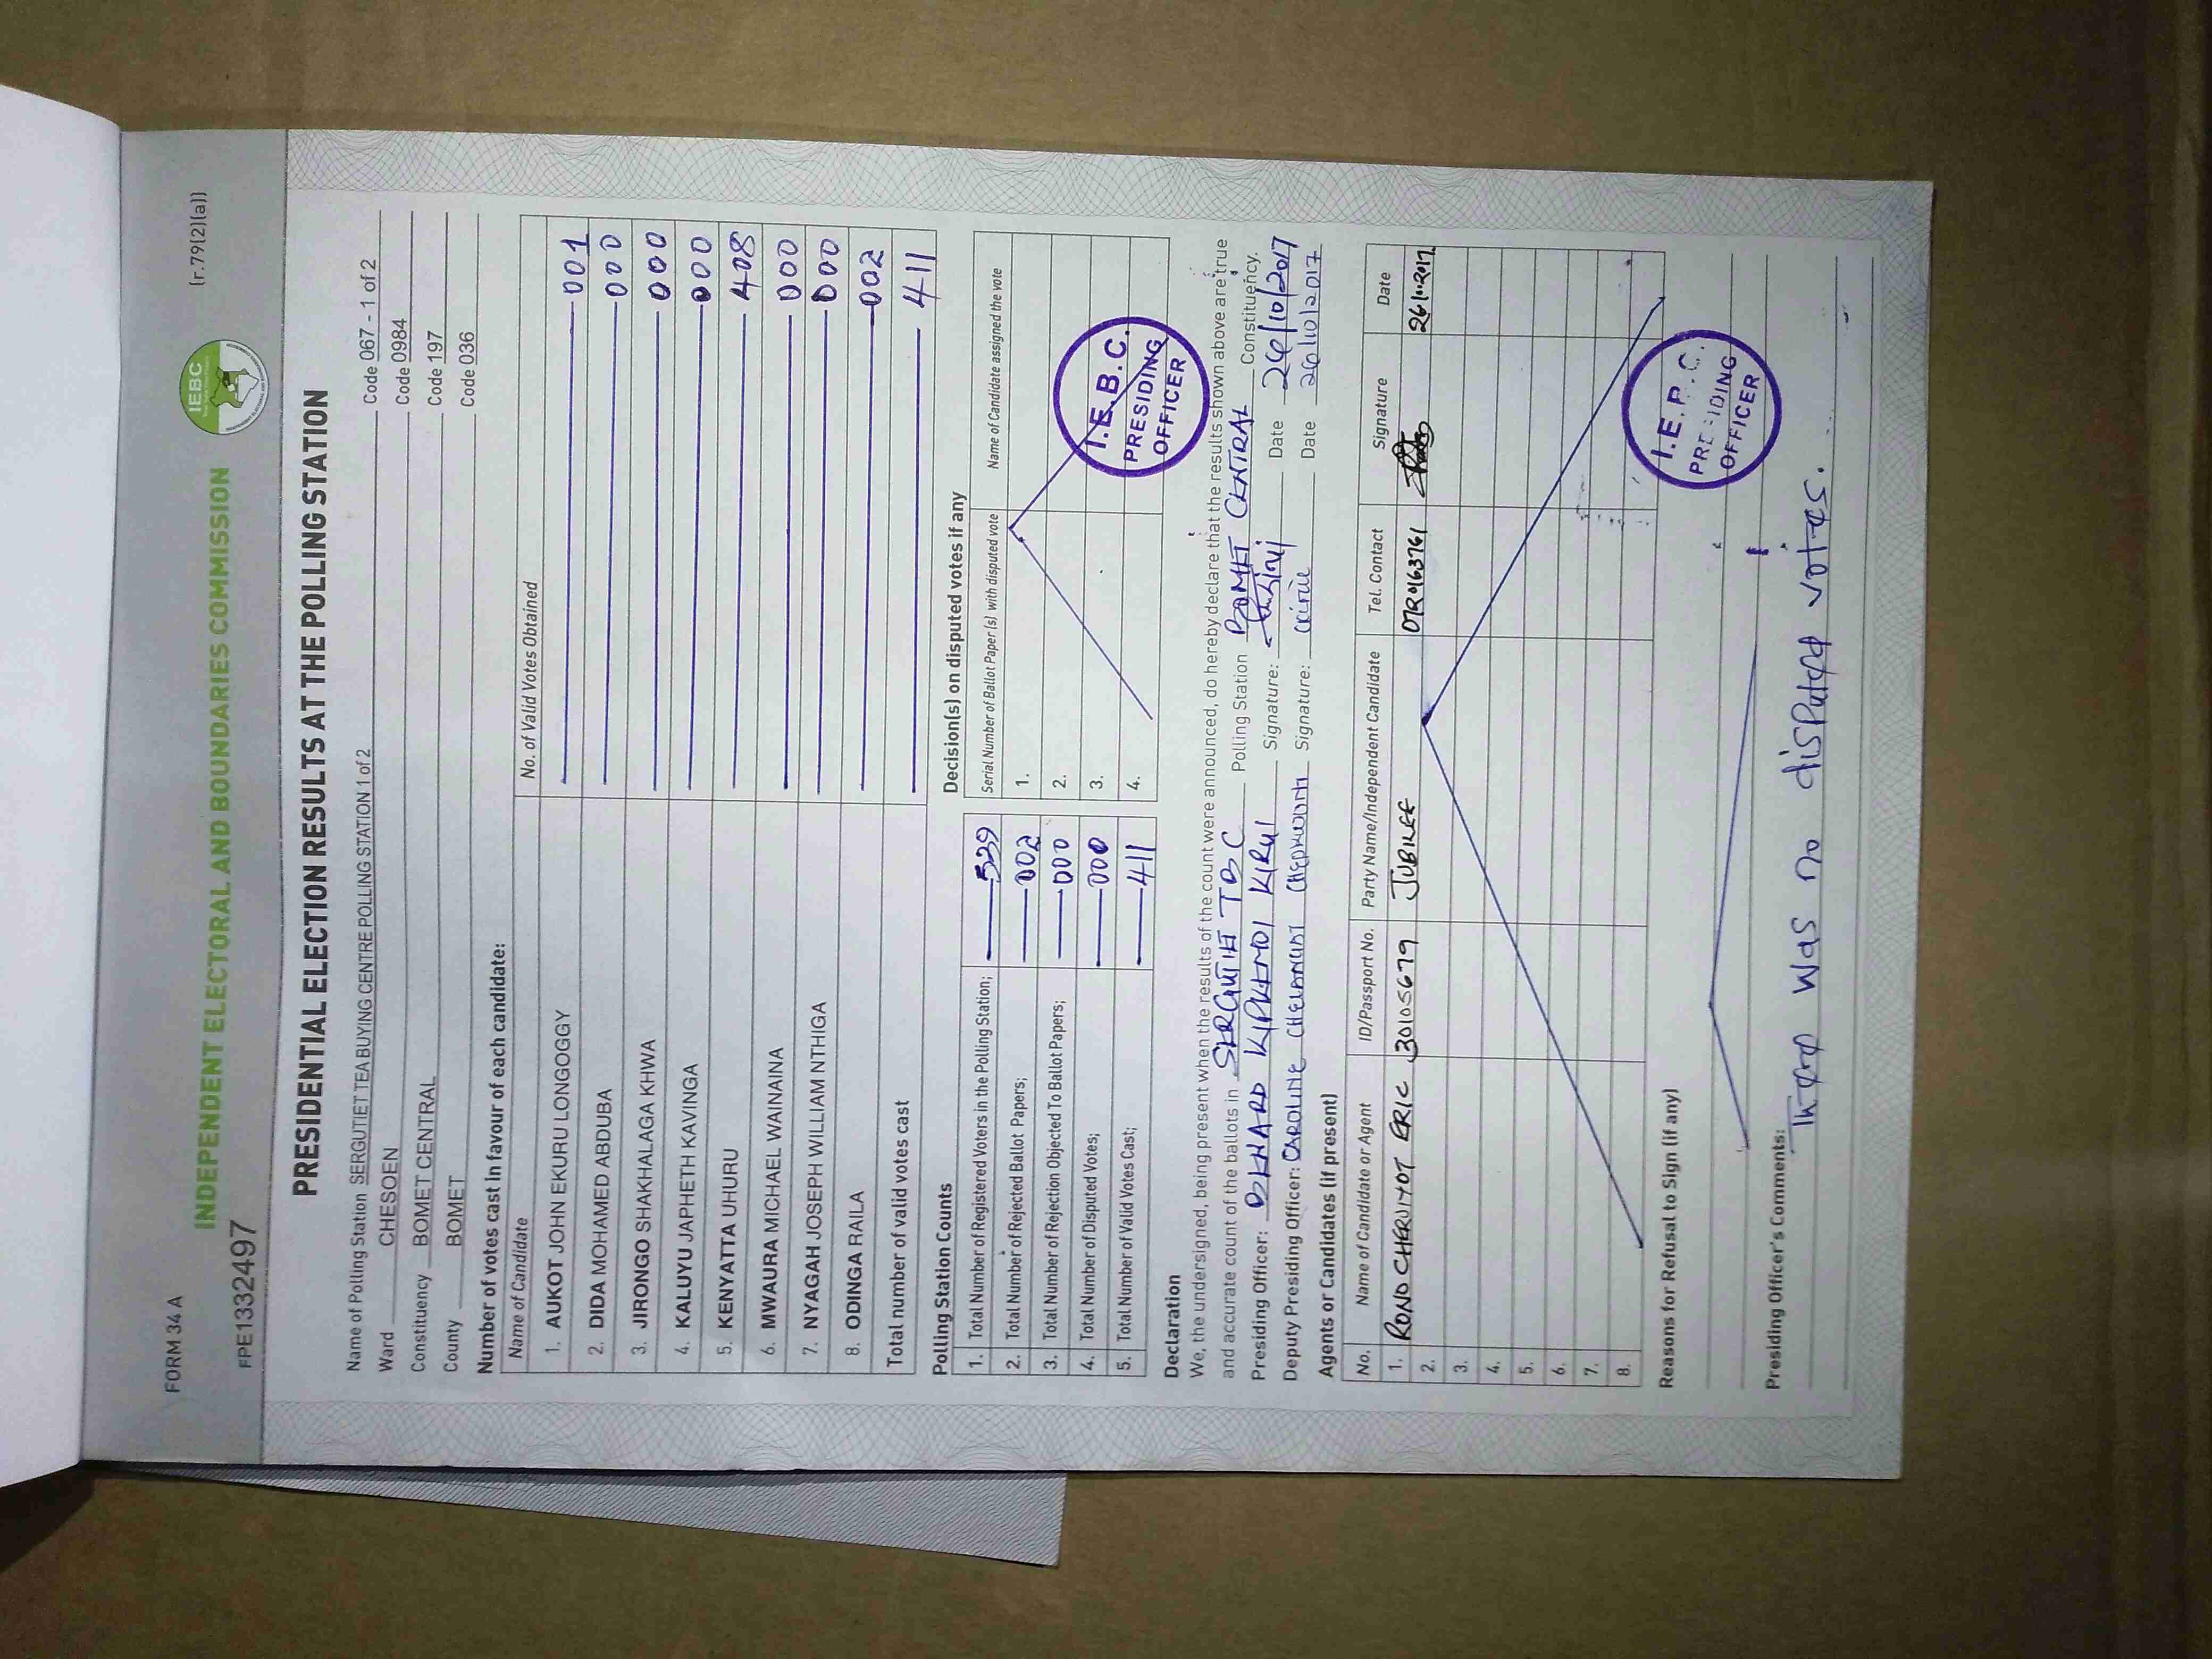 FORM 34 A
(r.79(2)(a))
IEBC
INDEPENDENT ELECTORAL AND BOUNDARIES COMMISSION
FPE1332497
PRESIDENTIAL ELECTION RESULTS AT THE POLLING STATION
Name of Polling Station SERGUTIET TEA BUYING CENTRE POLLING STATION 1 of 2 Code 067 - 1 of 2
Ward CHESOEN Code 0984
Constituency BOMET CENTRAL Code 197
County BOMET Code 036
Number of votes cast in favour of each candidate:
Name of Candidate No. of Valid Votes Obtained
1. AUKOT JOHN EKURU LONGOGGY 001
2. DIDA MOHAMED ABDUBA 000
3. JIRONGO SHAKHALAGA KHWA 000
4. KALUYU JAPHETH KAVINGA 000
5. KENYATTA UHURU 408
6. MWAURA MICHAEL WAINAINA 000
7. NYAGAH JOSEPH WILLIAM NTHIGA 000
8. ODINGA RAILA 002
Total number of valid votes cast 411
Polling Station Counts
1. Total Number of Registered Voters in the Polling Station; 539
2. Total Number of Rejected Ballot Papers; 002
3. Total Number of Rejection Objected To Ballot Papers; 000
4. Total Number of Disputed Votes; 000
5. Total Number of Valid Votes Cast; 411
Decision(s) on disputed votes if any
Serial Number of Ballot Paper (s) with disputed vote Name of Candidate assigned the vote
1.
2.
3.
4.
I.E.B.C.
PRESIDING
OFFICER
Declaration
We, the undersigned, being present when the results of the count were announced, do hereby declare that the results shown above are true
and accurate count of the ballots in SERGUTIET TBC Polling Station BOMET CENTRAL Constituency.
Presiding Officer: DENARD KIPKEMOI KIRUI Signature: Date 26/10/2017
Deputy Presiding Officer: CAROLINE CHELANGAT CHEPKWONY Signature: Date 26/10/2017
Agents or Candidates (if present)
No. Name of Candidate or Agent ID/Passport No. Party Name/Independent Candidate Tel. Contact Signature Date
1. RONO CHERUIYOT ERIC 30105679 JUBILEE
2.
3.
4.
5.
6.
7.
8.
I.E.B.C.
PRESIDING
OFFICER
Reasons for Refusal to Sign (if any)
Presiding Officer's Comments:
There was no disputed votes.